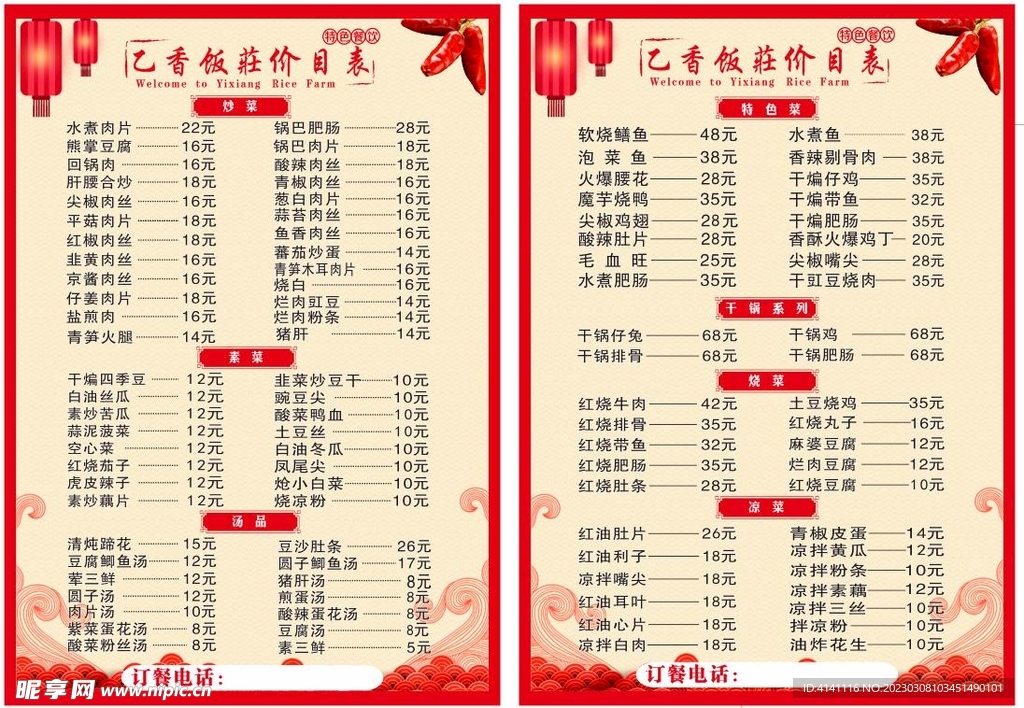 特色餐饮
乙香饭莊价目表
Welcome to Yixiang Rice Farm
炒菜
水煮肉片 22元
熊掌豆腐 16元
回锅肉 16元
肝腰合炒 18元
尖椒肉丝 16元
平菇肉片 18元
红椒肉丝 18元
韭黄肉丝 16元
京酱肉丝 16元
仔姜肉片 18元
盐煎肉 16元
青笋火腿 14元
锅巴肥肠 28元
锅巴肉片 18元
酸辣肉丝 18元
青椒肉丝 16元
葱白肉片 16元
蒜苔肉丝 16元
鱼香肉丝 16元
蕃茄炒蛋 14元
青笋木耳肉片 16元
烧白 16元
烂肉豇豆 14元
烂肉粉条 14元
猪肝 14元
素菜
干煸四季豆 12元
白油丝瓜 12元
素炒苦瓜 12元
蒜泥菠菜 12元
空心菜 12元
红烧茄子 12元
虎皮辣子 12元
素炒藕片 12元
韭菜炒豆干 10元
豌豆尖 10元
酸菜鸭血 10元
土豆丝 10元
白油冬瓜 10元
凤尾尖 10元
炝小白菜 10元
烧凉粉 10元
汤品
清炖蹄花 15元
豆腐鲫鱼汤 12元
荤三鲜 12元
圆子汤 12元
肉片汤 10元
紫菜蛋花汤 8元
酸菜粉丝汤 8元
豆沙肚条 26元
圆子鲫鱼汤 17元
猪肝汤 8元
煎蛋汤 8元
酸辣蛋花汤 8元
豆腐汤 8元
素三鲜 5元
订餐电话：
昵享网 www.nipic.cn
特色餐饮
乙香饭莊价目表
Welcome to Yixiang Rice Farm
特色菜
软烧鳝鱼 48元
泡菜鱼 38元
火爆腰花 28元
魔芋烧鸭 35元
尖椒鸡翅 28元
酸辣肚片 28元
毛血旺 25元
水煮肥肠 35元
水煮鱼 38元
香辣剔骨肉 38元
干煸仔鸡 35元
干煸带鱼 32元
干煸肥肠 35元
香酥火爆鸡丁 20元
尖椒嘴尖 28元
干豇豆烧肉 35元
干锅系列
干锅仔兔 68元
干锅排骨 68元
干锅鸡 68元
干锅肥肠 68元
烧菜
红烧牛肉 42元
红烧排骨 35元
红烧带鱼 32元
红烧肥肠 35元
红烧肚条 28元
土豆烧鸡 35元
红烧丸子 16元
麻婆豆腐 12元
烂肉豆腐 12元
红烧豆腐 10元
凉菜
红油肚片 26元
红油利子 18元
凉拌嘴尖 18元
红油耳叶 18元
红油心片 18元
凉拌白肉 18元
青椒皮蛋 14元
凉拌黄瓜 12元
凉拌粉条 10元
凉拌素藕 12元
凉拌三丝 10元
拌凉粉 10元
油炸花生 10元
订餐电话：
ID:4141116 NO:20230308103451490101